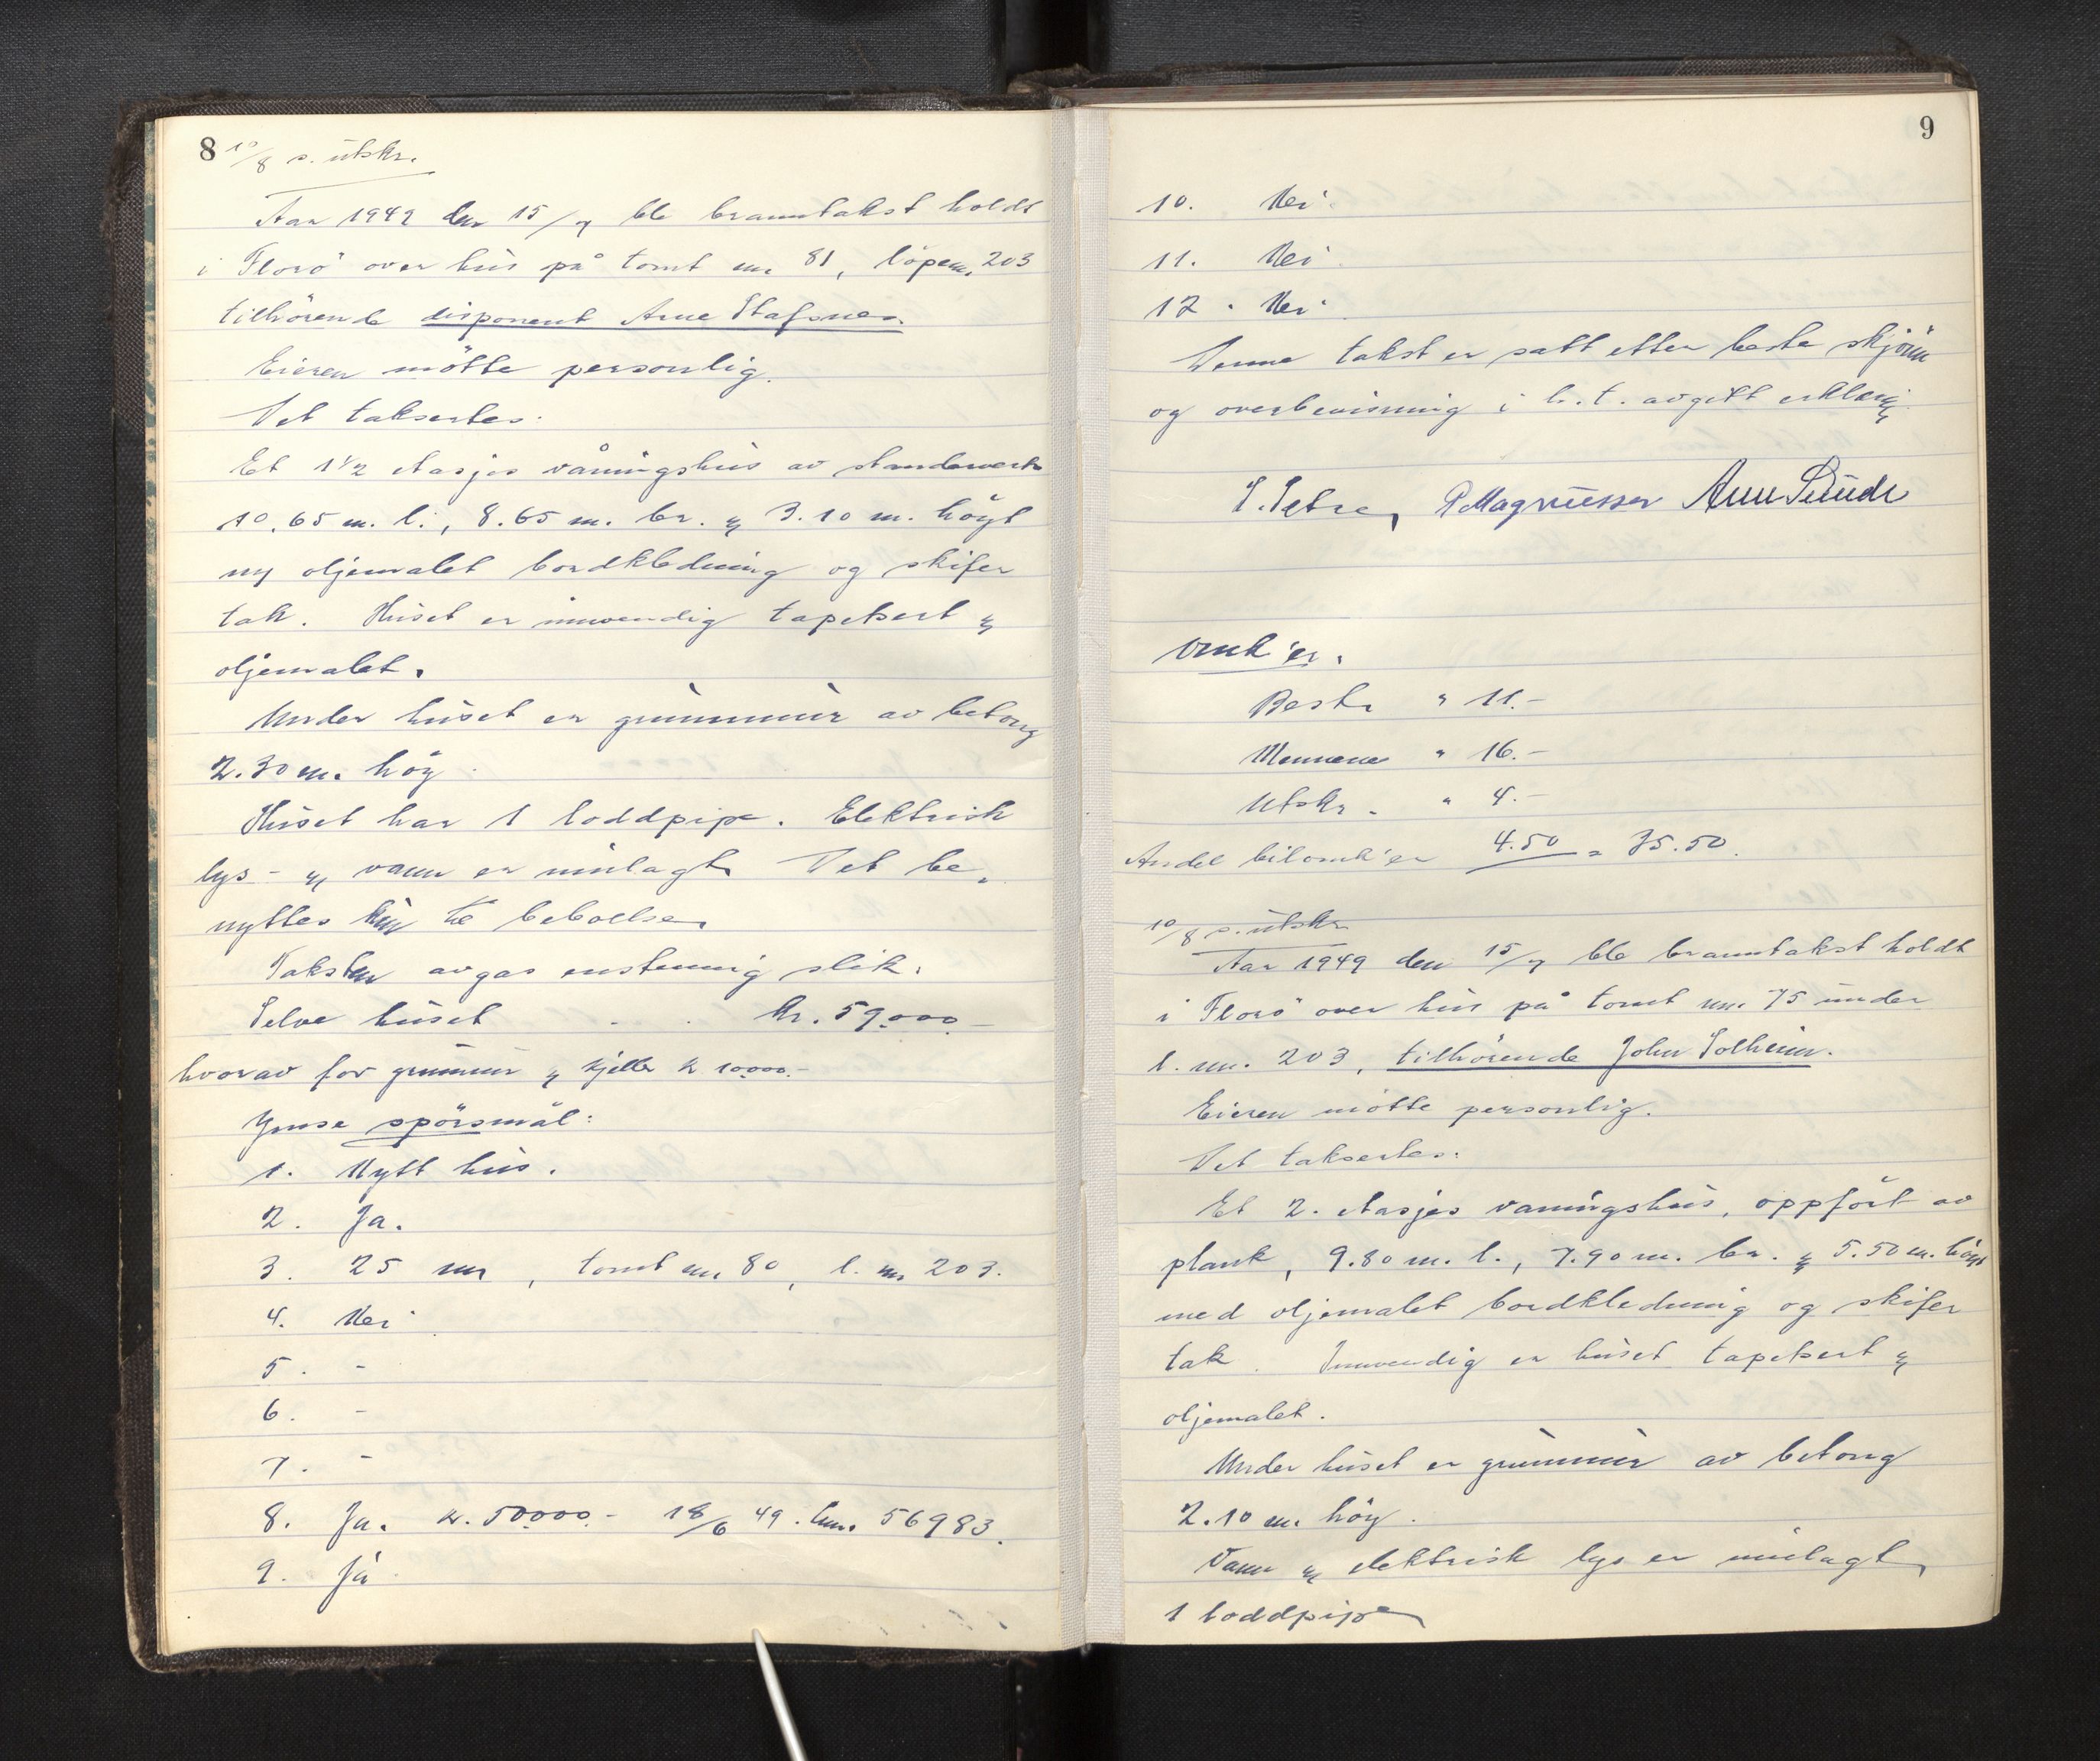 8
10/8 s. utskr.
Aar 1949 den 15/7 ble branntakst holdt
i Florø over hus på tomt nr. 81, löpenr. 203
tilhörende disponent Arne Stafsnes.
Eieren mötte personlig.
Det taksertes:
Et 1 1/2 etasjes våningshus av standerverk
10.65 m. l., 8.65 m. br. & 3.10 m. höyt
m/ oljemalet bordkledning og skifer
tak. Huset er innvendig tapetsert &
oljemalet.
Under huset er grunnmur av betong
2.30 m. höy.
Huset har 1 loddpipe. Elektrisk
lys- & vann er innlagt. Det be-
nyttes kun til beboelse.
Taksten avgas enstemmig slik:
Selve huset . . kr. 59.000.-
hvorav for grunnmur & kjeller kr. 10000.-
Ymse spörsmål:
1. Nytt hus.
2. Ja.
3. 25 m, tomt nr. 80, l. nr 203.
4. Nei
5. -
6. -
7. -
8. Ja. kr. 50000.- 18/6 49. lnr. 56983.
9. Ja
9
10. Nei
11. Nei
12. Nei
Denne takst er satt etter beste skjönn
og overbevisning i h.t. avgitt erklæring
S. Setre, P Magnussen Arne Sunde
Omk'er.
Bestr " 11.-
Mennene " 16.-
Utskr. " 4.-
Andel bilomk'er 4.50 = 35.50.
10/8 s. utskr.
Aar 1949 den 15/7 ble branntakst holdt
i Florø over hus på tomt nr. 75 under
l. nr. 203, tilhörende John Solheim.
Eieren mötte personlig.
Det taksertes:
Et 2. etasjes vaningshus, oppfört av
plank, 9.80 m. l., 7.90 m. br. & 5.50 m. höyt
med oljemalet bordkledning og skifer
tak. Innvendig er huset tapetsert &
oljemalet.
Under huset er grunnmur av betong
2.10 m. höy.
Vann & elektrisk lys er innlagt,
1 loddpipe